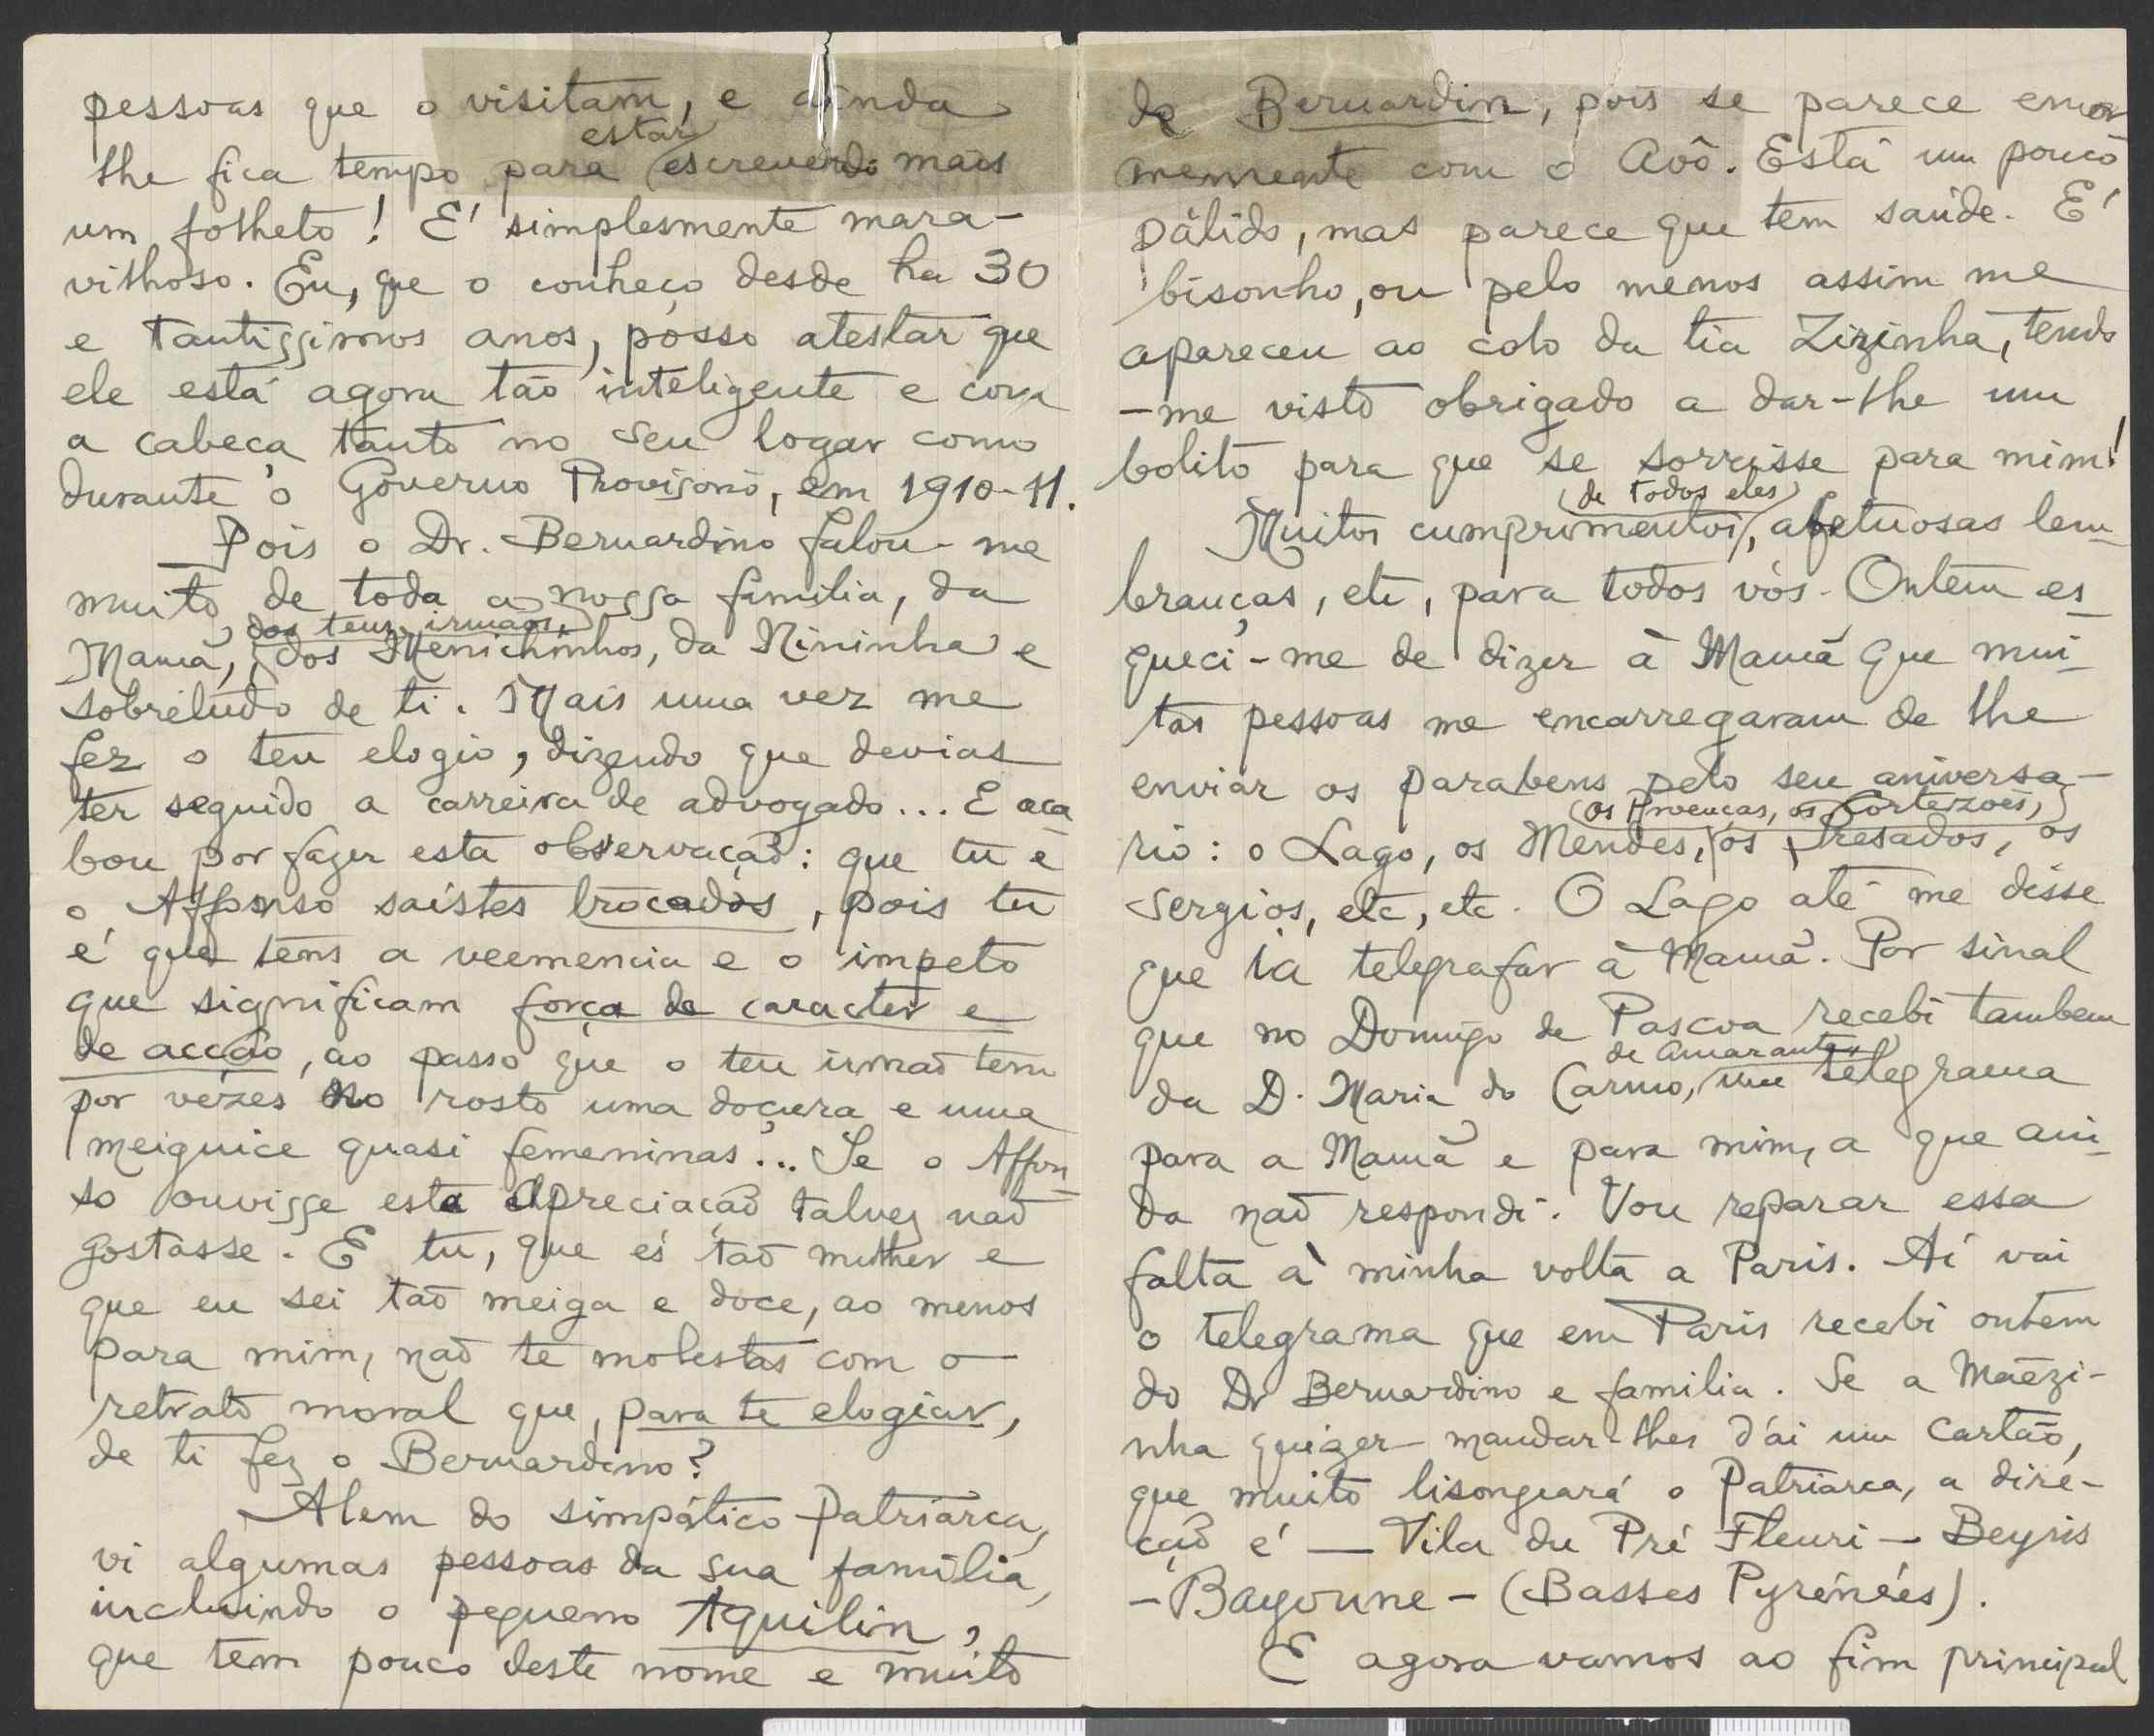 pessoas que o visitam, e ainda
lhe fica tempo para estar escrevendo mais
um folheto! E' simplesmente mara-
vilhoso. Eu, que o conheço desde ha 30
e tantissimos anos, posso atestar que
ele está agora tão inteligente e com
a cabeça tanto no seu logar como
durante o Governo Provisorio, em 1910-11.
Pois o Dr. Bernardino falou-me
muito de toda a nossa familia, da
Mamã, dos teus irmãos, dos Menichinhos, da Nininha e
sobretudo de ti. Mais uma vez me
fez o teu elogio, dizendo que devias
ter seguido a carreira de advogado... E aca
bou por fazer esta observação: que tu e
o Affonso saístes trocados, pois tu
é que tens a veemencia e o impeto
que significam força de caracter e
de acção, ao passo que o teu irmão tem
por vezes no rosto uma doçura e uma
meiguice quasi femeninas... Se o Affon-
so ouvisse esta apreciação talvez não
gostasse. E tu, que és tão mulher e
que eu sei tão meiga e doce, ao menos
para mim, não te molestas com o
retrato moral que, para te elogiar,
de ti fez o Bernardino?
Alem do simpático Patriarca,
vi algumas pessoas da sua familia,
incluindo o pequeno Aquilin,
que tem pouco deste nome e muito
de Bernardin, pois se parece enor
memente com o Avô. Está um pouco
pálido, mas parece que tem saúde. E'
bisonho, ou pelo menos assim me
apareceu ao colo da tia Zizinha, tendo
-me visto obrigado a dar-lhe um
bolito para que se sorrisse para mim!
Muitos cumprimentos de todos eles, afetuosas lem-
branças, etc, para todos vós. Ontem es-
queci-me de dizer à Mamã que mui-
tas pessoas me encarregaram de lhe
enviar os parabens pelo seu aniversa-
rio: o Lago, os Mendes, os Proenças, os Cortezões, os Presados, os
Sergios, etc, etc. O Lago até me disse
que ia telegrafar à Mamã. Por sinal
que no Domingo de Pascoa recebi tambem
da D. Maria do Carmo, de Amarante, um telegrama
para a Mamã e para mim, a que ain-
da não respondi. Vou reparar essa
falta à minha volta a Paris. Aí vai
o telegrama que em Paris recebi ontem
do Dr Bernardino e familia. Se a Mãezi-
nha quizer mandar-lhes d'aí um cartão,
que muito lisongeará o Patriarca, a dire-
ção é — Vila du Pré Fleuri — Beyris
- Bayonne - (Basses Pyrénées).
E agora vamos ao fim principal